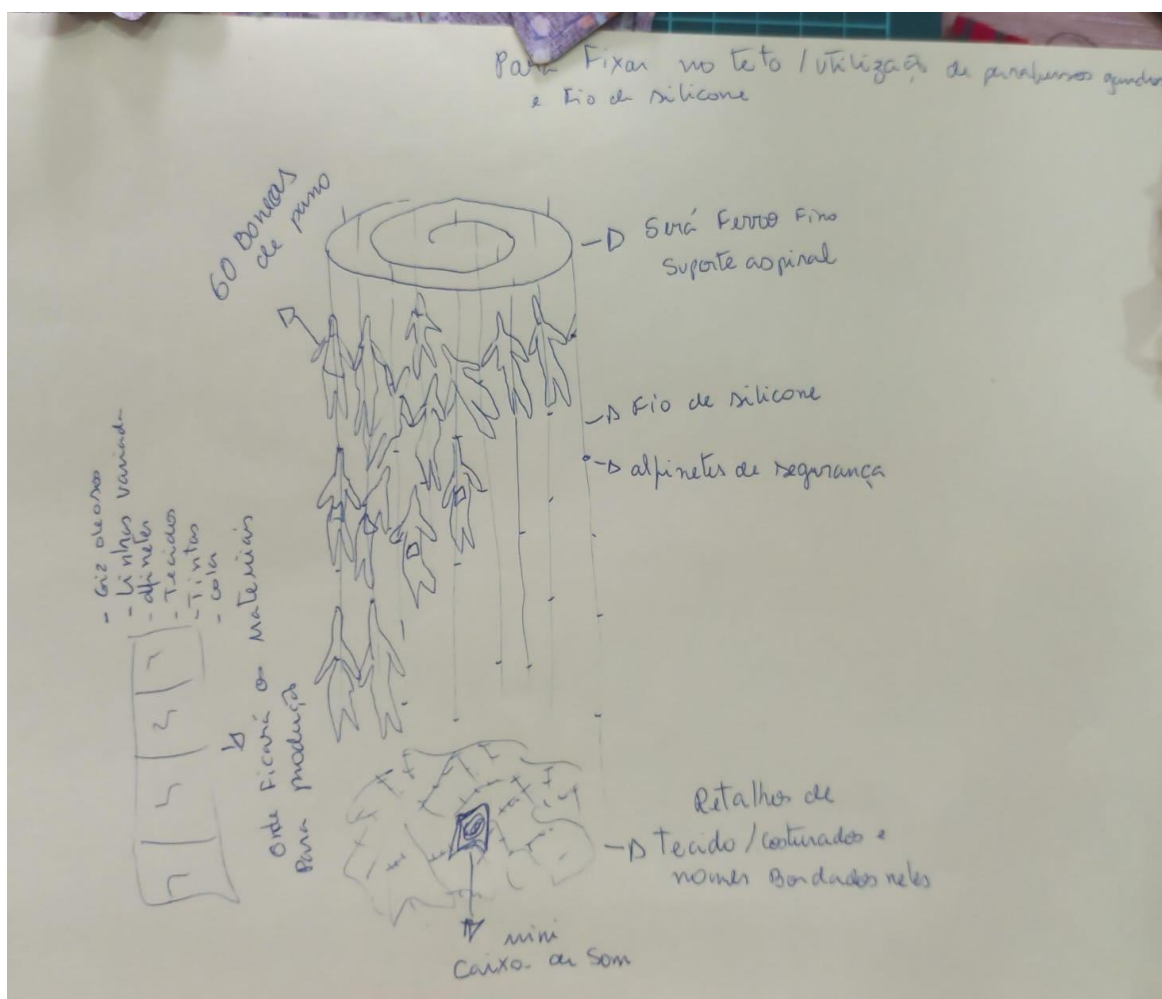 Para Fixar no teto / utilização de parafusos gancho
e Fio de silicone
60 Bonecas
de pano
Será Ferro Fino
Suporte aspiral
Fio de silicone
alpinetes de segurança
- Giz oleoso
- Linhas variada
- alfinetes
- Tecidos
- Tintas
- cola
Onde Ficará os Materiais
Para produção
Retalhos de
Tecido / costurados e
nomes Bordados neles
mini
Caixa de Som